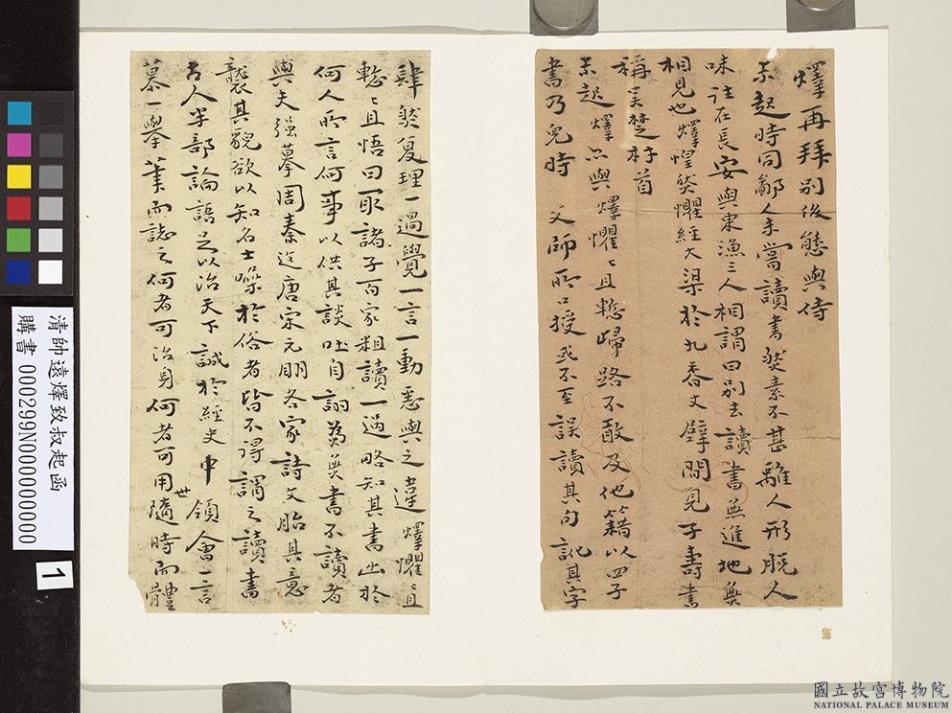 燁再拜別後態與侍
叔起時同鄙人未嘗讀書然素不甚離人形脫人
味證在長安與東漁三人相謂曰別去讀書無進地無
相見也燁惶然懼經大梁於孔香文壁間見子壽書
稱吴楚 首
叔起燁亦與燁懼懼且慙歸路不敢及他籍以四子
書乃兒時 父師所口授或不至誤讀其句訛其字
肆然夏理一過覺一言一動悉與之違燁懼懼且
慙慙且悟曰取諸子百家粗讀一過略知其書出於
何人所言何事以供其談吐自詡為無書不讀者
與夫强摹周秦迄唐宋元明各家詩文胎其意
襲其貌欲以知名士噪於俗者皆不得謂之讀書
古人半部論語足以治天下誠於經史中領會一言
慕一舉筆而誌之何者可治身何者可用世隨時而體
清帥遠燁致叔起函
購書 000299N000000000
1
國立故宮博物院
NATIONAL PALACE MUSEUM